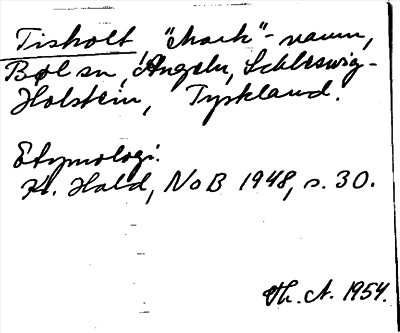 Tisholt, "Mark"-navn,
Bøl sn, Angeln, Schleswig-
Holstein, Tyskland.
Etymologi:
K. Hald, NoB 1948, s. 30.
Th. A. 1954.